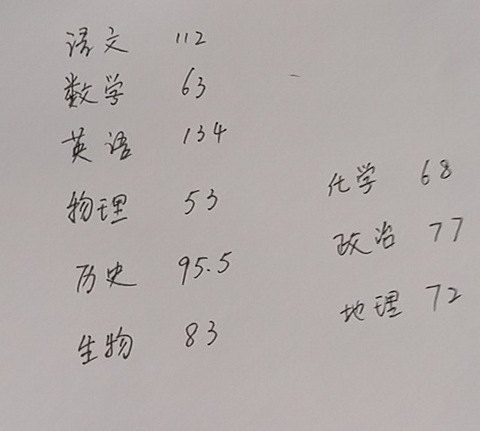 语文 112
数学 63
英语 134
物理 53
历史 95.5
生物 83
化学 68
政治 77
地理 72